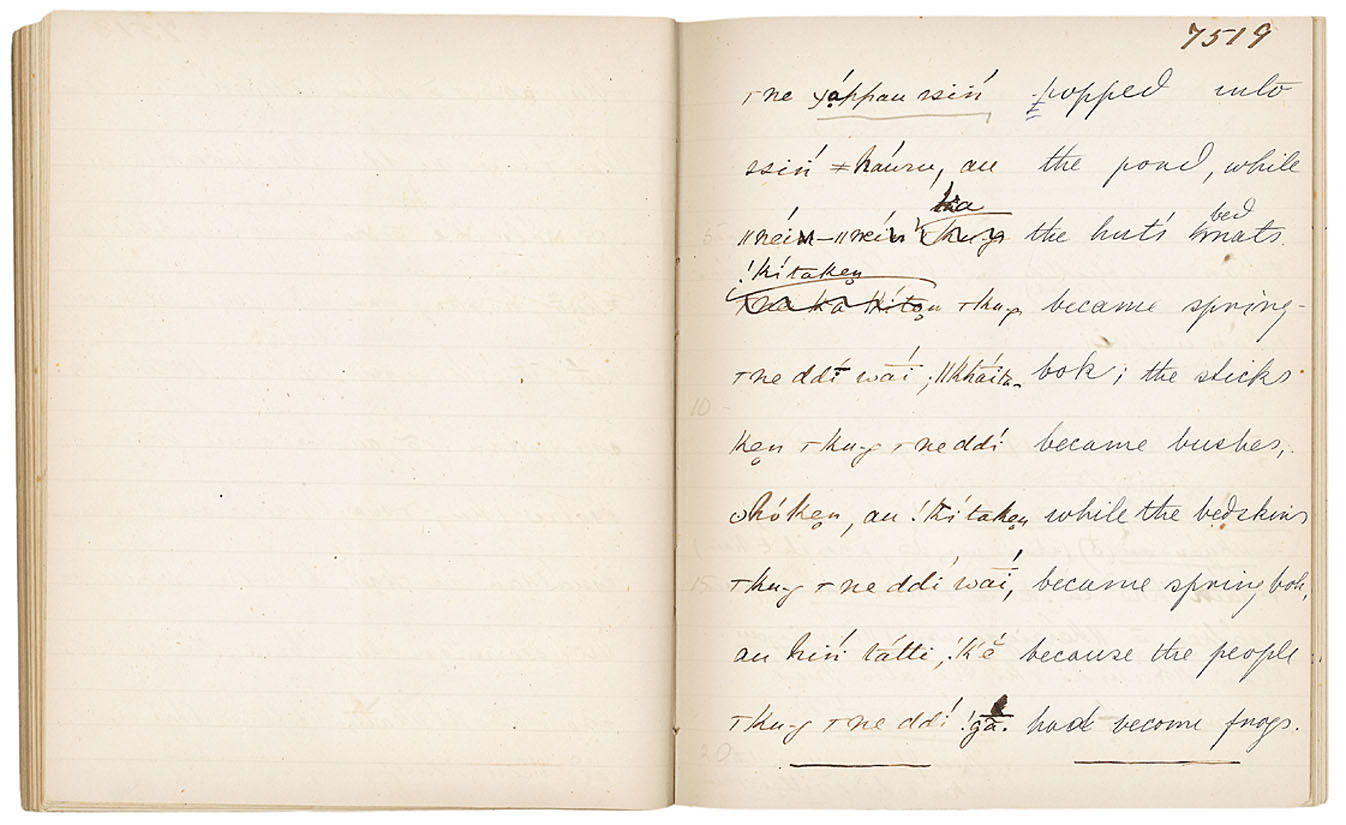 7519
ɪne yáppau ssiń popped into
ssiń ≠kauru, au the pond, while
ǁneiń–ǁneiń the huts' bed mats
!kítaken ɪku-g became spring-
ɪne ddí wāí; ǁkháita- bok; the sticks
ken ɪku-g ɪne ddí became bushes,
ʘhóken, au !kítaken while the bedskins
ɪku-g ɪne ddí wāí, became springbok,
au hiń tátti, !ké because the people
ɪku-g ɪne ddí !gā. had become frogs.